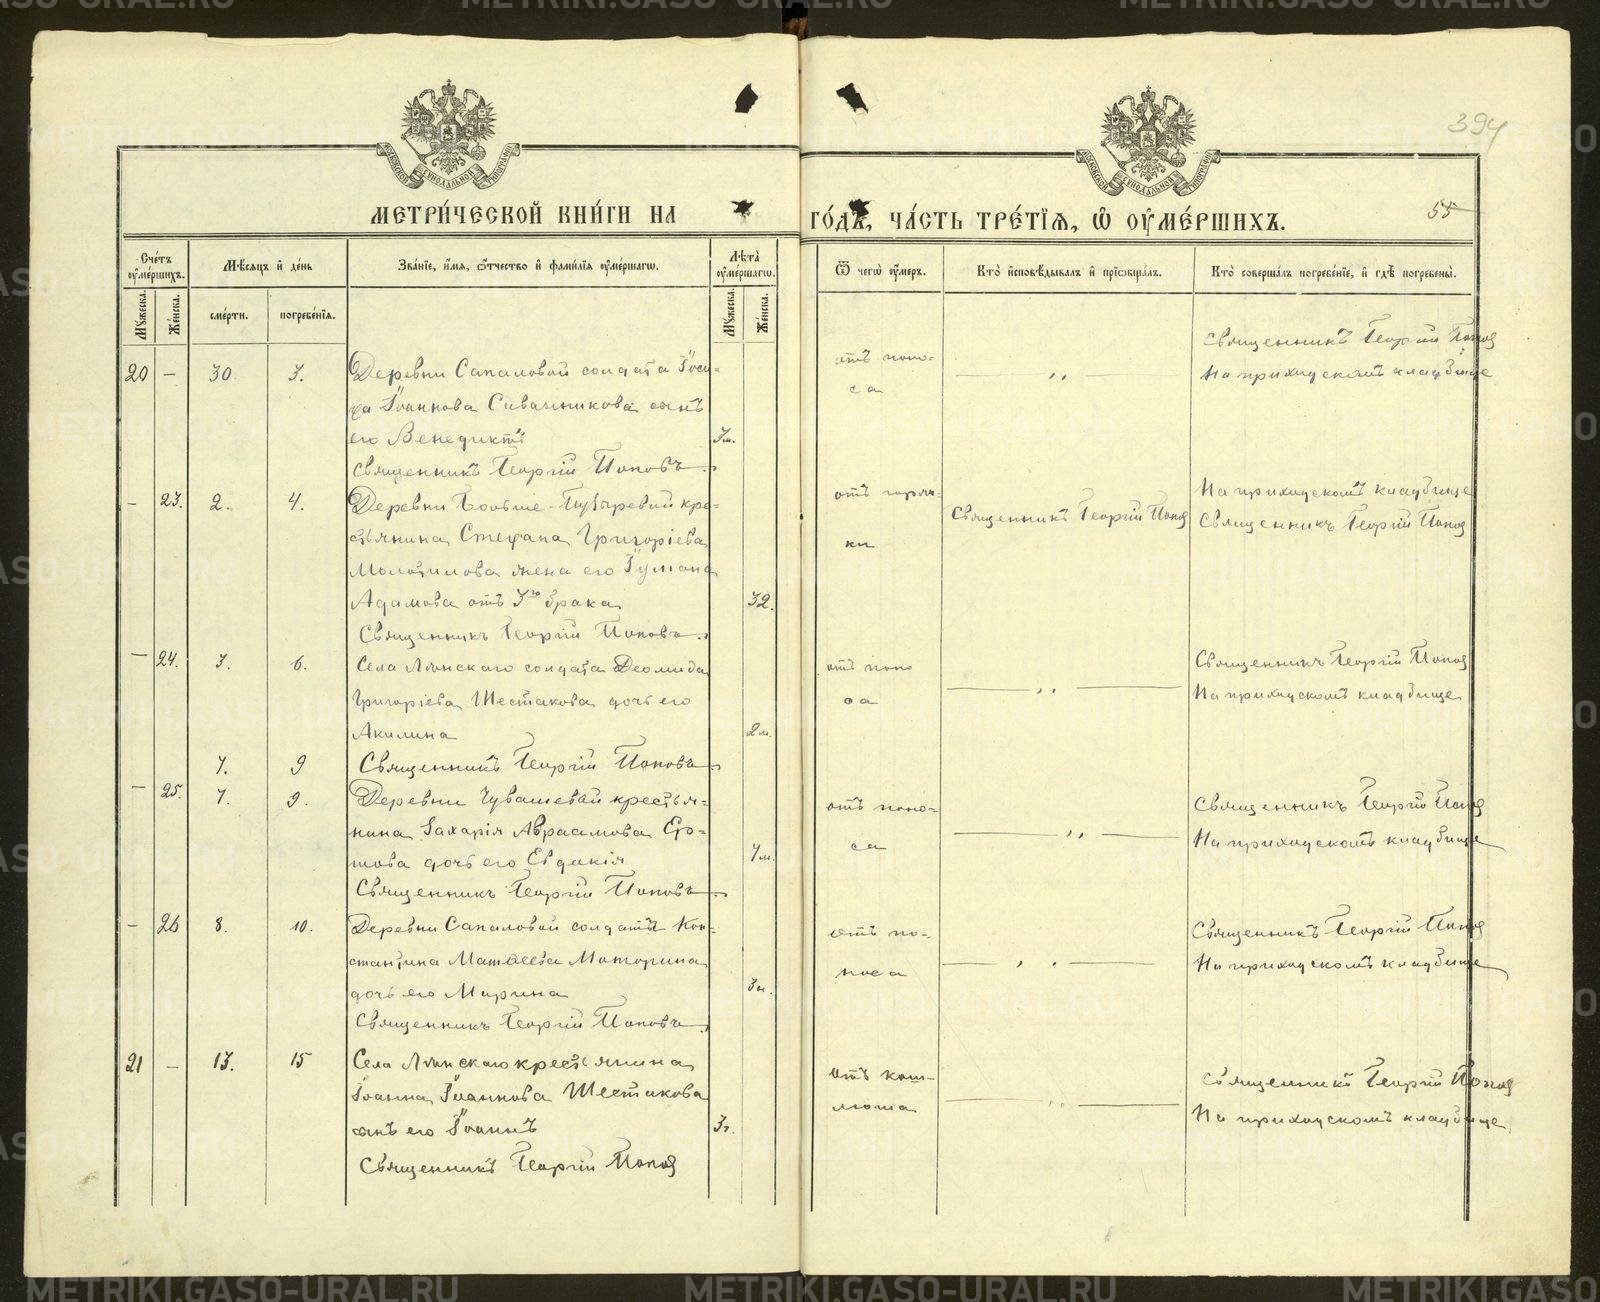 МЕТРИ́ЧЕСКОЙ КНИ́ГИ НА
ГО́ДЪ, ЧА́СТЬ ТРЕ́ТІЯ, Ѡ ОУМЕ́РШИХЪ.
394
55
Сче́тъ оуме́ршихъ.
Мѣсяцъ и де́нь
Зва́ніе, и́мя, о́тчество и фами́лія оуме́ршагѡ.
Лѣта̀ оуме́ршагѡ.
Ѿ чегѡ̀ оу́меръ.
Кто̀ исповѣ́дывалъ и пріѡбща́лъ.
Кто̀ соверша́лъ погребе́ніе, и гдѣ̀ погребены̀.
Мꙋ́жеска.
Же́нска.
сме́рти.
погребе́нія.
Мꙋ́жеска.
Же́нска.
20 — 30 3. Деревни Сапаловой солдата Іоси-
фа Іоаннова Сивачникова сынъ
его Венедиктъ 3м.
Священникъ Георгій Поповъ
отъ поно-
са
Священникъ Георгій Попов
На приходскомъ кладбище
— 23. 2. 4. Деревни Больше-Пузыревой кре-
стьянина Стефана Григоріева
Молотилова жена его Іуліана
Адамова отъ 3го брака 32.
Священникъ Георгій Поповъ
отъ горяч-
ки
Священникъ Георгій Попов
На приходскомъ кладбище
Священникъ Георгій Попов
— 24. 3. 6. Села Лянскаго солдата Деомида
Григоріева Шестакова дочь его
Акилина 2м.
7. 9 Священникъ Георгій Поповъ
отъ поно
са
Священникъ Георгій Попов
На приходскомъ кладбище
— 25. 7. 9. Деревни Чувашевой крестья-
нина Захарія Авраамова Ер-
това дочь его Евдокія 7м.
Священникъ Георгій Поповъ
отъ поно-
са
Священникъ Георгій Попов
На приходскомъ кладбище
— 26 8. 10. Деревни Сапаловой солдата Кон-
стантина Матѳеева Моторина
дочь его Марина 3н.
Священникъ Георгій Поповъ
отъ по-
носа
Священникъ Георгій Попов
На приходскомъ кладбище
21 — 13. 15 Села Лянскаго крестьянина
Іоанна Іоаннова Шестакова
сынъ его Іоаннъ 3г.
Священникъ Георгій Попов
отъ каш-
люта
Священникъ Георгій Попов
На приходскомъ кладбище
METRIKI.GASO-URAL.RU